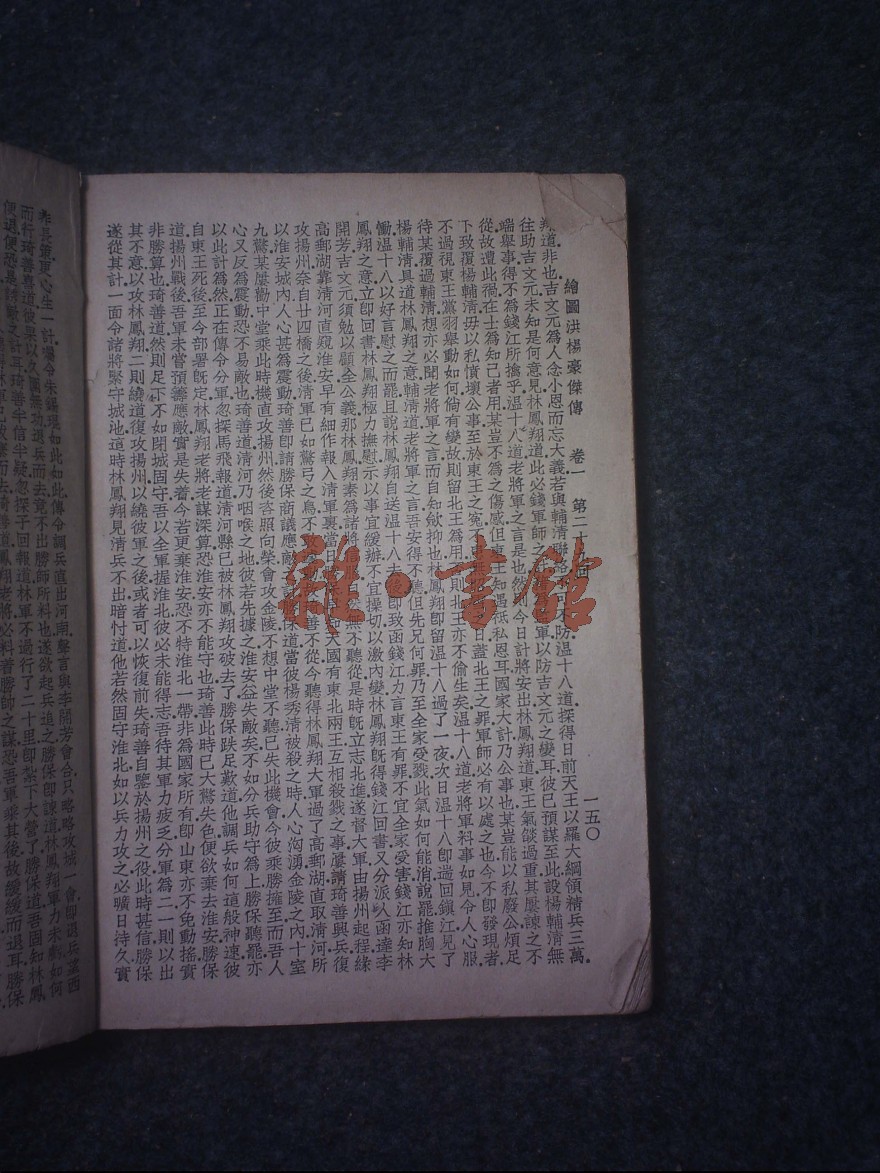 繪圖洪楊豪傑傳 卷一 第二十 回 一五〇
翔道.非也.吉文元為人念小恩而忘大義.若與輔清聯 不 防.温十八道.探得日前天王以羅大綱領精兵三萬.
往助吉文元.未知是何意見.林鳳翔道.此必錢軍師之 軍以防吉文元之變耳.彼已預謀至此.設楊輔清無
端舉事.得不為錢江所擒乎.温十八道.老將軍之言是也.然則今日計將安出.林鳳翔道.東王氣燄過重.其屢諫之不
從.故遭此禍.在士為知己者用.某豈不為之傷感.但東王知遇.祇私恩耳.國家大計.乃公事也.某豈能以私廢公.煩足
下致覆楊輔清.毋以私憤壞公事.至於東王之寃.不 之日.蓋北王之罪.軍師必有以處之也.今不即發現者.
不過視東王黨羽舉動如何.倘有變故.則留北王為用. 則北王亦不偷生矣.温十八道.老將軍料事如見.令人心服.
待某覆過輔清.想亦必聞老將軍之言而自知斂抑也.林鳳翔即留温十八過了一夜.次日温十八即遄回鎮江.見了
楊輔清.具道林鳳翔之意.輔清道.老將軍之言.吾安得不聽.但先兄何罪.乃至全家受戮.此氣如何能消.說罷推胸大
慟.温十八以好言慰之而罷.且說林鳳翔自送温十八去後.即致函錢江.力言東王有罪.不宜全家受害.錢江亦知林
鳳翔之意.立即回書林鳳翔.極力撫慰.示以事宜緩辦.不宜操切以激內變.林鳳翔既得錢江回書.又分派人函達李
開芳吉文元.須勉以顧全公義.那林鳳翔素為諸將信 無不聽從.是時既立志北進.遂督大軍由揚州起程.緣
高郵湖靠清河.直窺淮安.早有細作報入清軍裏.當日 天國有東北兩王互相殺戮之事.屢請琦善興兵復
攻揚州.奈自廿四橋之後.清軍已如驚弓之鳥.不敢 善不從.今聽得林鳳翔大軍過了高郵湖.直取清河.所
以淮安城內.人心甚為震動.琦善即請勝保商議應敵 保道.當彼楊秀清被殺之時.人心洶湧.金陵之內.十室
九驚.某屢勸中堂乘此時機.直攻揚州.然後咨照向榮會攻金陵.不想中堂不聽.已失此機會.今彼乘勝擁至.而吾人
心又反為震動.恐不易敵也.琦善道.清河乃咽喉之地.彼若先據之.淮安益失敵矣.不如分兵助守為上.勝保聽罷亦
以此計為然.正在傳令分軍.忽探馬飛報道.清河縣已被林鳳翔攻破去了.勝保跌足歎道.他調兵如何這般神速.彼
自東王死後.至今部署既定.林鳳翔老將.老謀深算.恐淮安亦不能守也.琦善此時已大驚失色.便欲棄去淮安.勝保
道.揚州戰後.吾軍未嘗預籌應敵.實是失着.今若更棄淮安.恐不特淮北一帶非為國家所有.即山東亦不免動搖.實
非勝算也.琦善道.然則足下不如閉城固守.吾以全軍握淮北.彼必未能得志.吾待其軍力疲乏.分軍為二.一則以出
其不意以攻林鳳翔.二則繞道復攻揚州.以繞彼軍之後.或者可以恢復前失.琦善自鑒於揚州之役.此時甚信勝保.
遂從其計.一面令諸將緊守城池.這時林鳳翔見清兵不出.暗忖道.他若然固守淮北.如以兵力攻之.必曠日待久.實
雜·書館